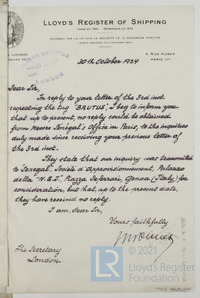 LLOYD'S REGISTER OF SHIPPING
4, RUE AUBER
PARIS
30th October 1924
Dear Sir,
In reply to your letter of the 3rd inst
respecting the tug "BRUTUS", I beg to inform you
that, up to present, no reply could be obtained
from Messrs Senegal's Office in Paris, to the inquiries
duty made since receiving your previous letter of
the 3rd inst.
They state that our inquiry was transmitted
to Senegal, Societa d'approvisionnement, Palazzo
della "N.G.I.", Piazza Deferrari, Genoa (Italy) for
consideration, but that, up to the present date,
they have received no reply.
I am Dear Sir,
Yours faithfully
The Secretary
London
© 2021
LR
Foundation